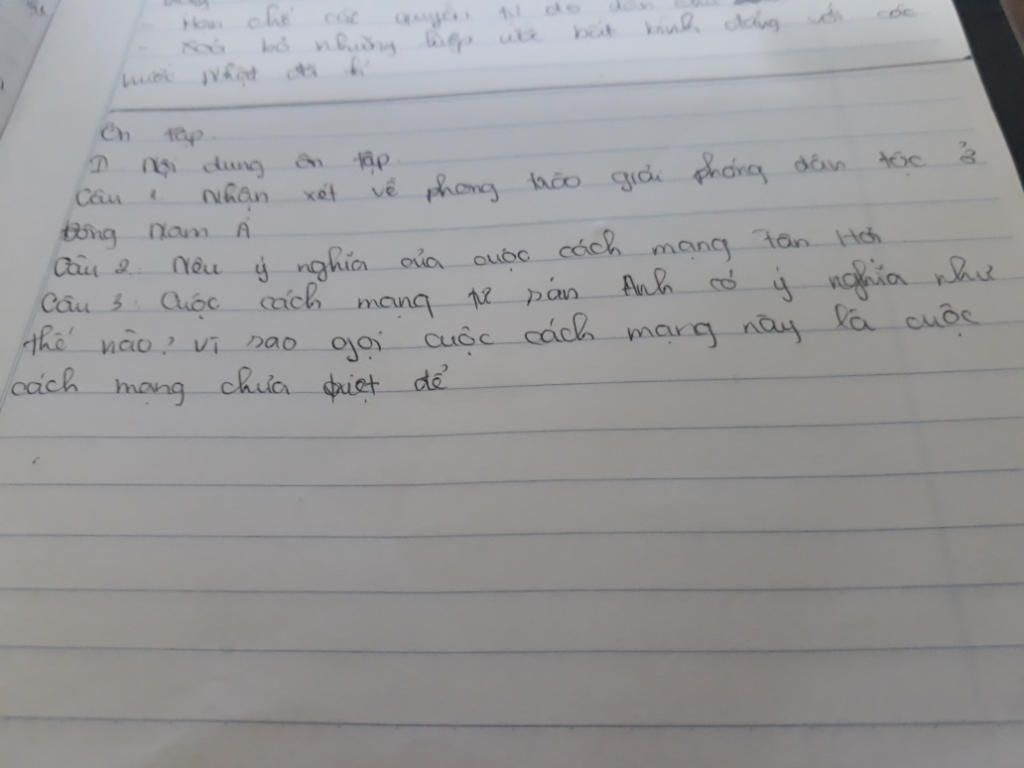 - Hạn chế các quyền tự do dân
- Xoá bỏ những hiệp ước bất bình đẳng với các
nước Nhật đã kí
Ôn tập
I) Nội dung ôn tập
Câu 1 Nhận xét về phong trào giải phóng dân tộc ở
Đông Nam Á
Câu 2. Nêu ý nghĩa của cuộc cách mạng Tân Hợi
Câu 3: Cuộc cách mạng tư sản Anh có ý nghĩa như
thế nào? Vì sao gọi cuộc cách mạng này là cuộc
cách mạng chưa triệt để